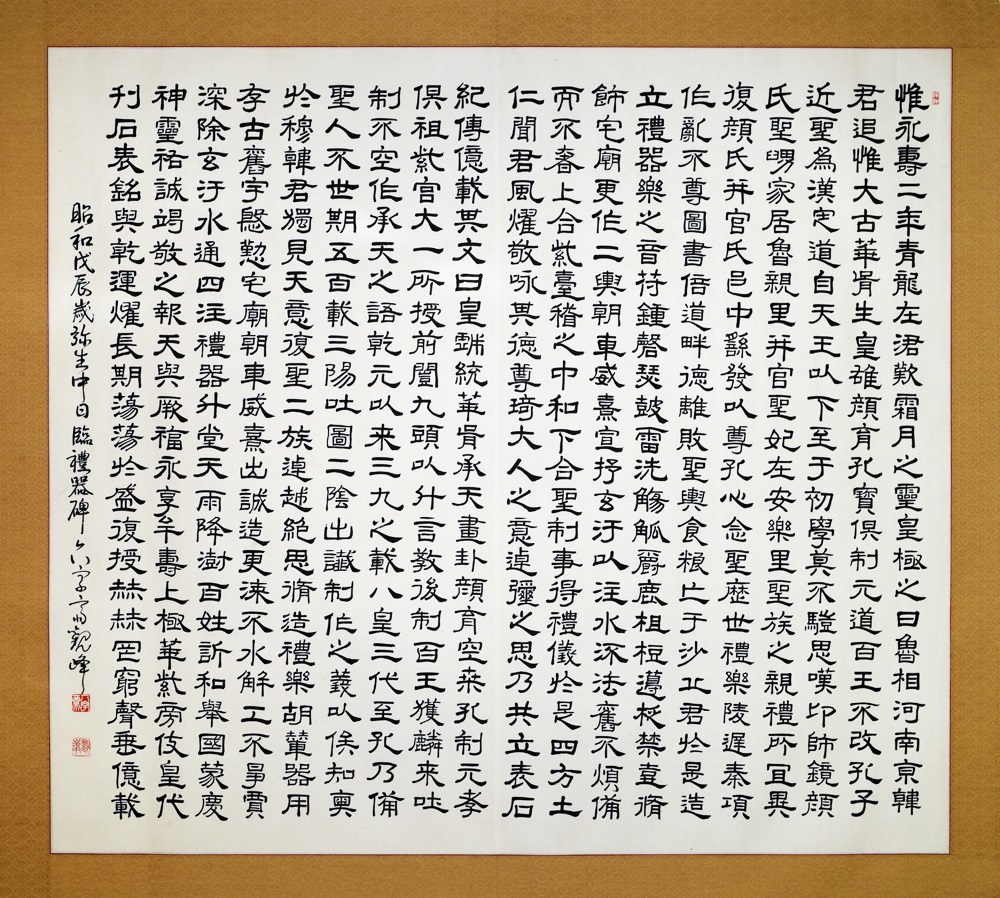 惟永壽二年青龍在涒歎霜月之靈皇極之日魯相河南京韓
君追惟大古華胥生皇雄顏育孔寶俱制元道百王不改孔子
近聖為漢定道自天王以下至于初學莫不驥思嘆卬師鏡顏
氏聖舅家居魯親里并官聖妃在安樂里聖族之親禮所宜異
復顏氏并官氏邑中繇發以尊孔心念聖歷世禮樂陵遲秦項
作亂不尊圖書倍道畔德離敗聖輿食糧亡于沙丘君於是造
立禮器樂之音符鍾磬瑟鼓雷洗觴觚爵鹿柤梪籩柉禁壺脩
飾宅廟更作二輿朝車威熹宣抒玄汙以注水流法舊不煩備
而不奢上合紫臺稽之中和下合聖制事得禮儀於是四方土
仁聞君風燿敬咏其德尊琦大人之意逴彌之思乃共立表石
紀傳億載其文曰皇戲統華胥承天畫卦顏育空桑孔制元孝
俱祖紫宮大一所授前闓九頭以升言教後制百王獲麟來吐
制不空作承天之語乾元以來三九之載八皇三代至孔乃備
聖人不世期五百載三陽吐圖二陰出讖制作之義以俟知奧
於穆韓君獨見天意復聖二族逴越絕思脩造禮樂胡輦器用
存古舊宇慇懃宅廟朝車威熹出誠造更漆不水解工不爭賈
深除玄汙水通四注禮器升堂天雨降澍百姓訢和舉國蒙慶
神靈祐誠竭敬之報天與厥福永享牟壽上極華紫旁伎皇代
刊石表銘與乾運燿長期蕩蕩於盛復授赫赫罔窮聲垂億載
昭和戊辰歲弥生中日臨禮器碑 觀峰